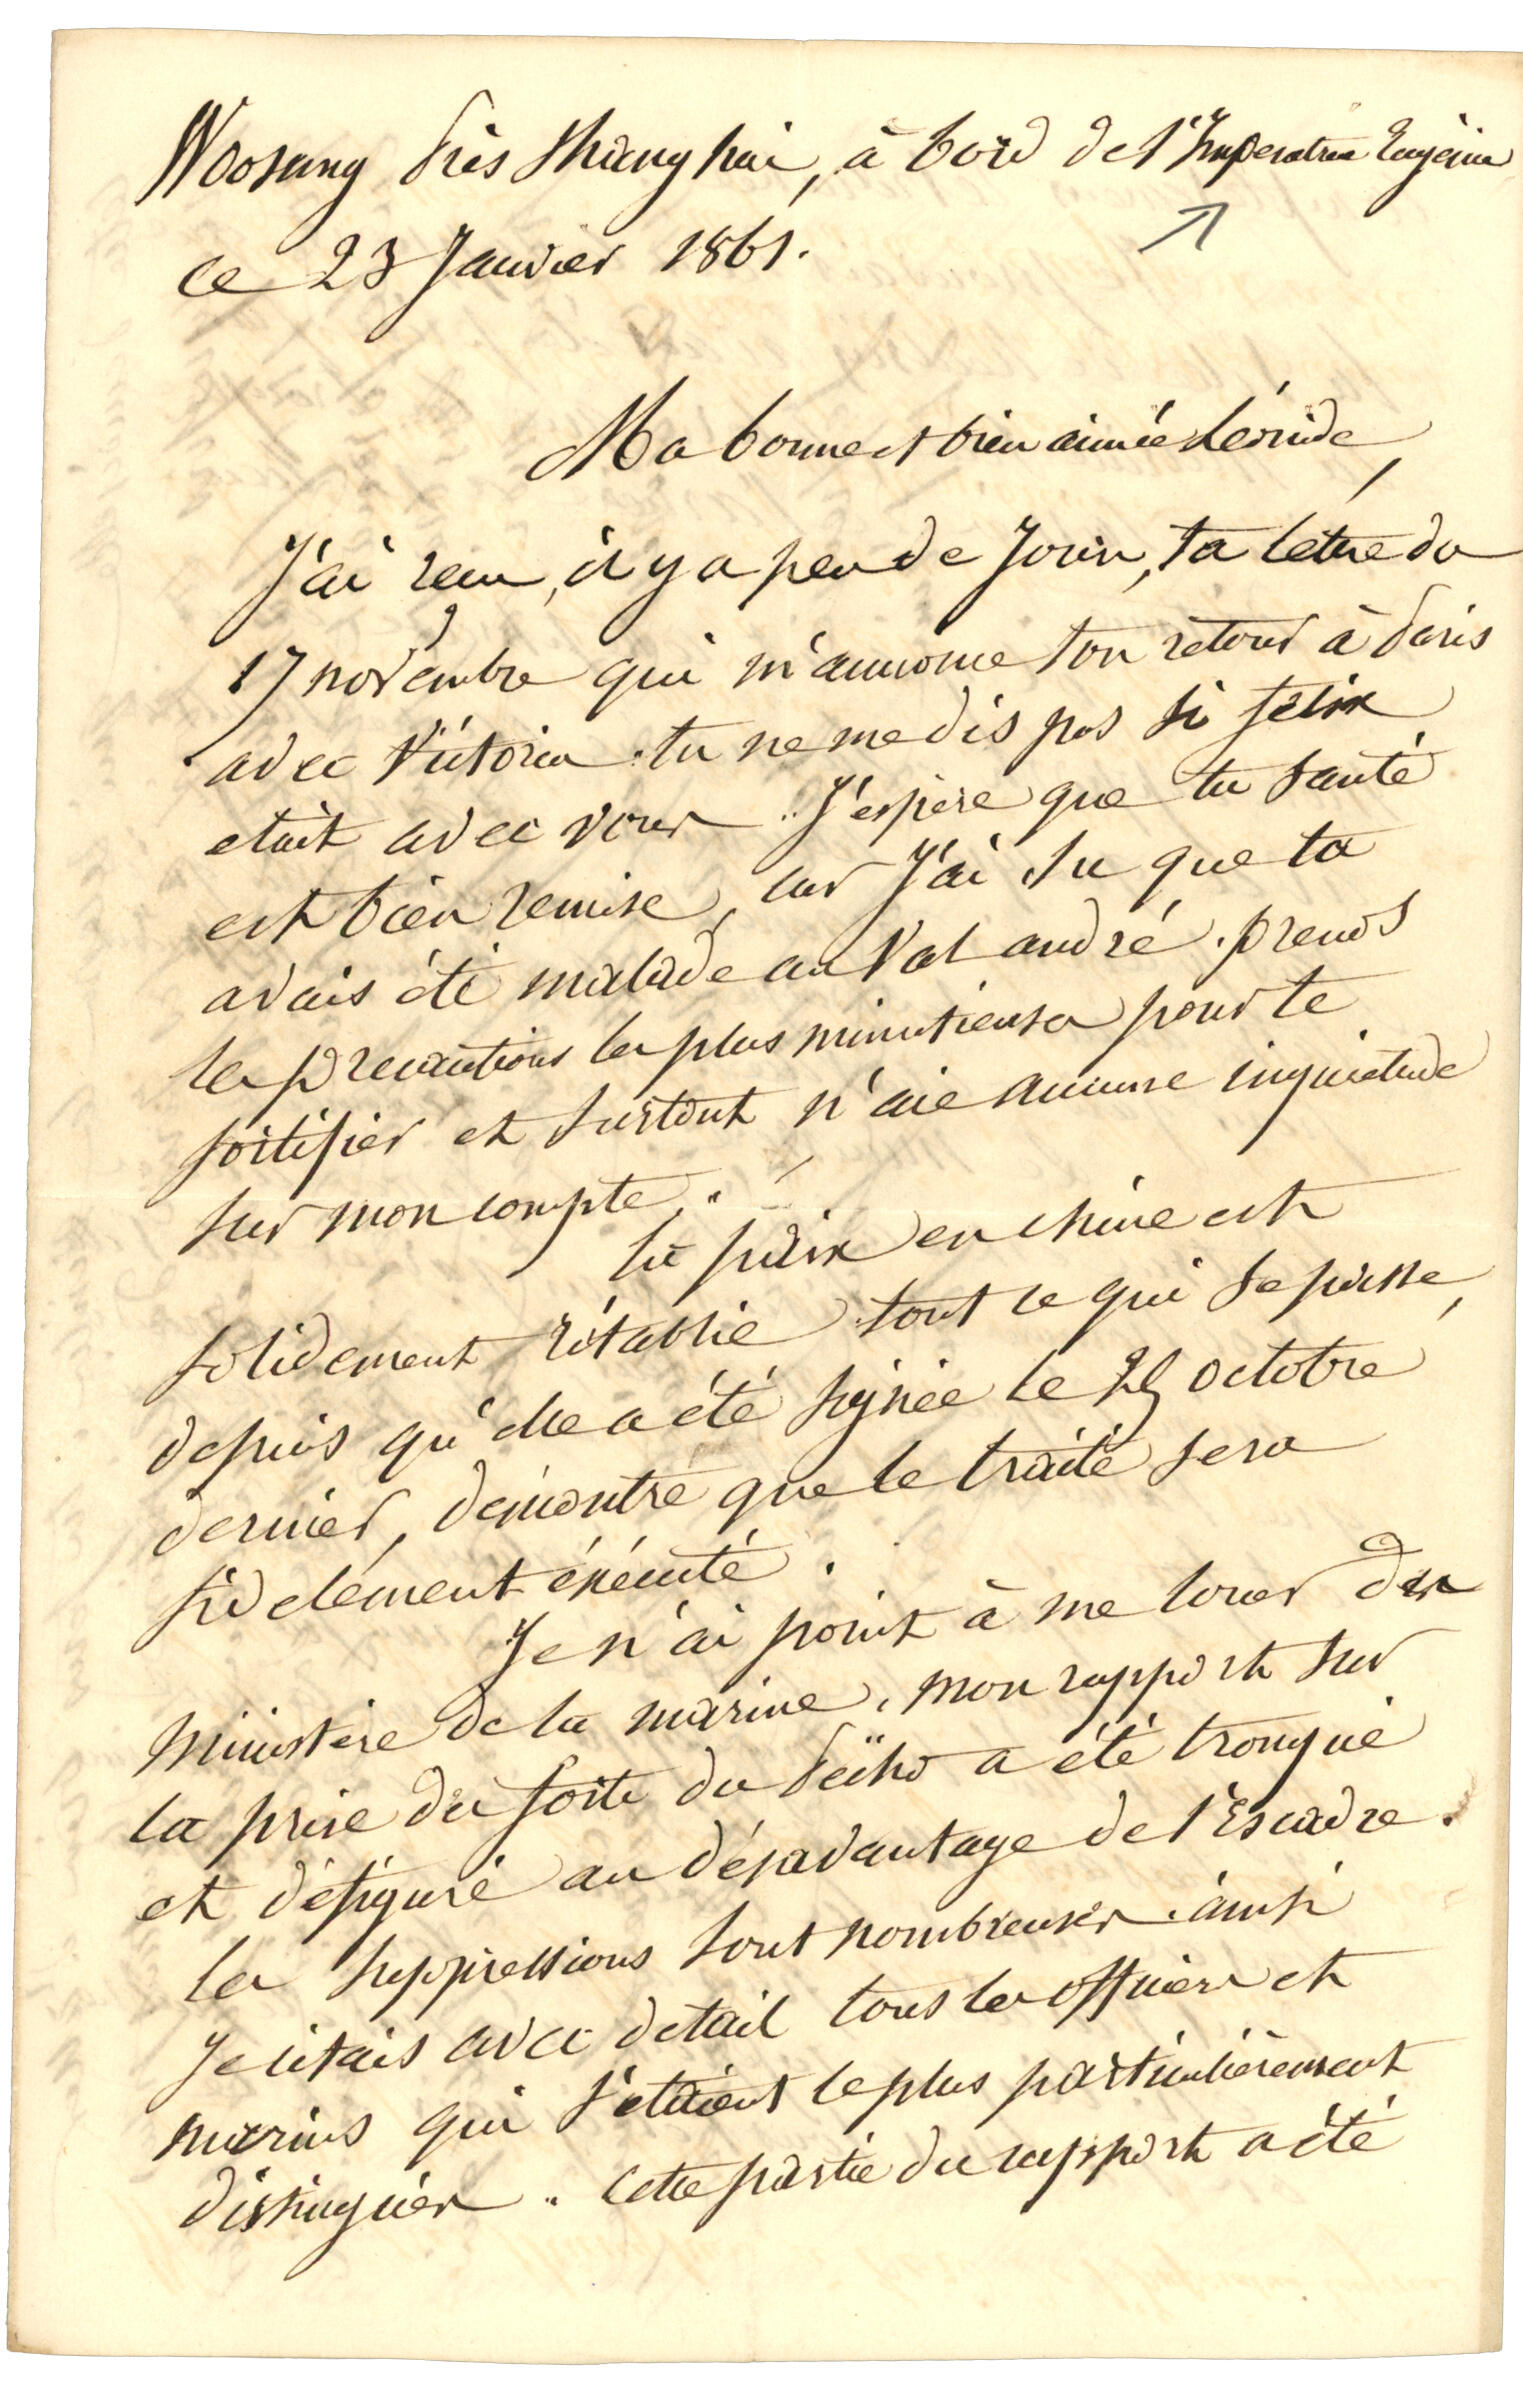 Woosung près Shang hai, à bord de l'Impératrice Eugénie
ce 23 Janvier 1861.
Ma bonne et bien aimée Léonide,
J'ai reçu, il y a peu de Jours, ta lettre du
17 novembre qui m'annonce ton retour à Paris
avec Victorine. tu ne me dis pas si félix
etait avec vous. J'espère que ta santé
est bien remise, car J'ai su que tu
avais été malade au Val andré. prends
les precautions les plus minutieuses pour te
fortifier et surtout n'aie aucune inquietude
sur mon compte.
la paix en chine est
solidement rétablie. tout ce qui se passe,
depuis qu'elle a été signée le 25 octobre
dernier, démontre que le traité sera
fidelement éxécuté.
Je n'ai point à me louer du
ministère de la marine. mon rapport sur
la prise des forts du Peïho a été tronqué
et défiguré au désavantage de l'Escadre.
les suppressions sont nombreuses. ainsi
Je citais avec detail tous les officiers et
marins qui s'etaient le plus particulièrement
distingués. Cette partie du rapport a été